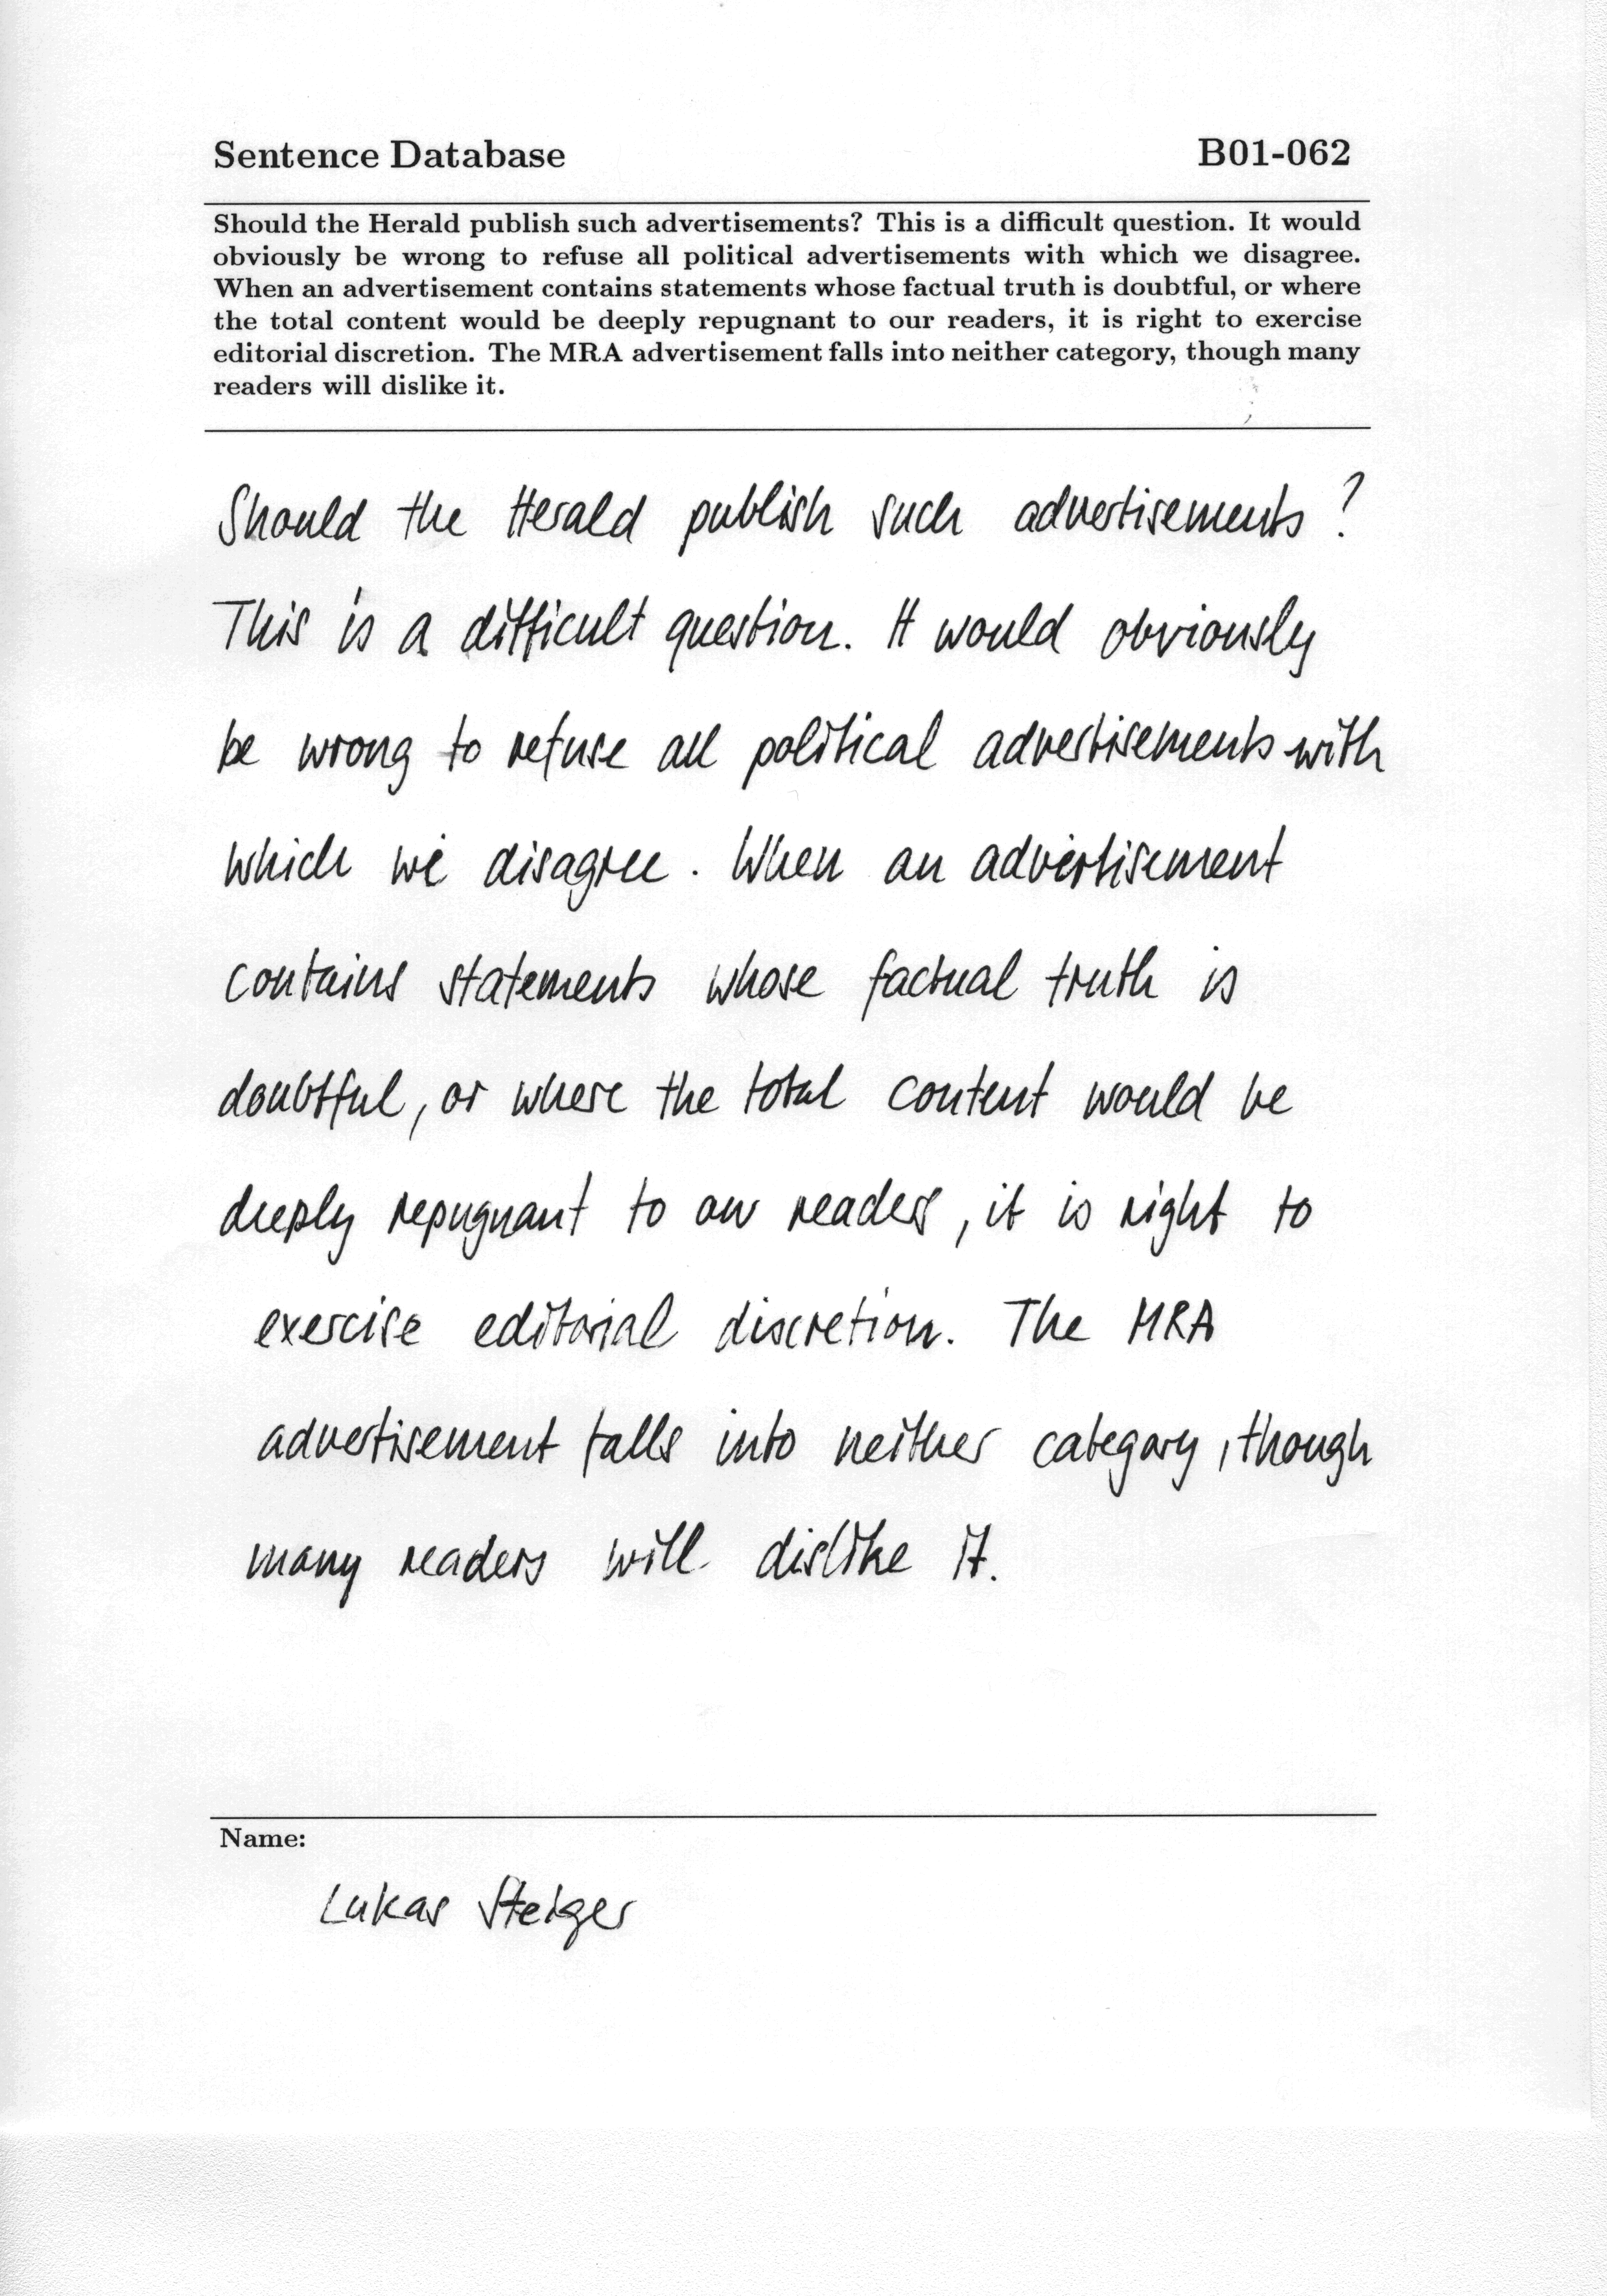 Sentence Database B01-062
Should the Herald publish such advertisements? This is a difficult question. It would
obviously be wrong to refuse all political advertisements with which we disagree.
When an advertisement contains statements whose factual truth is doubtful, or where
the total content would be deeply repugnant to our readers, it is right to exercise
editorial discretion. The MRA advertisement falls into neither category, though many
readers will dislike it.
Should the Herald publish such advertisements?
This is a difficult question. It would obviously
be wrong to refuse all political advertisements with
which we disagree. When an advertisement
contains statements whose factual truth is
doubtful, or where the total content would be
deeply repugnant to our readers, it is right to
exercise editorial discretion. The MRA
advertisement falls into neither category, though
many readers will dislike it.
Name:
Lukas Steiger